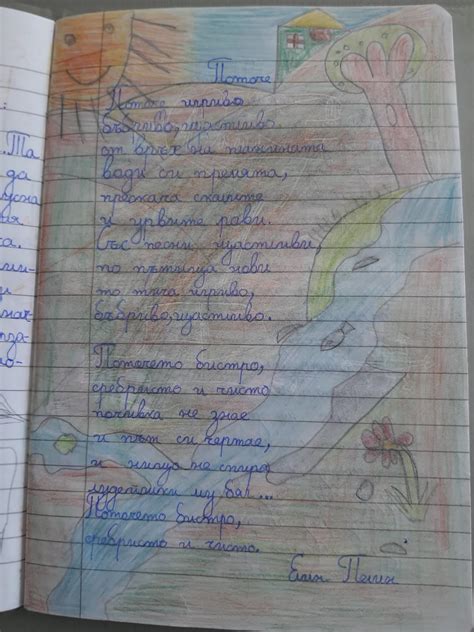 Поточе
Поточе игриво
бъбриво, щастливо
от връх на планината
води си премята,
прескача скалите
и урвите рови.
Със песни щастливи,
по пътища нови
то тича игриво,
бъбриво, щастливо.
Поточето бистро,
сребристо и чисто
почивка не знае
и път си чертае,
и нищо не спира
лудешки му бяг...
Поточето бистро,
сребристо и чисто.
Елин Пелин
.Та
да